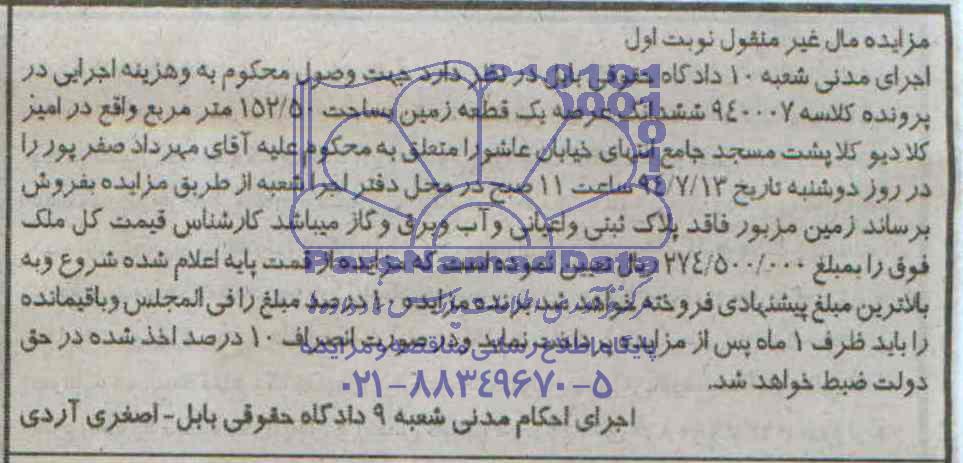 مزایده مال غیر منقول نوبت اول
اجرای مدنی شعبه ۱۰ دادگاه حقوقی بابل در نظر دارد جهت وصول محکوم به وهزینه اجرایی در
پرونده کلاسه ۹٤۰۰۰۷ ششدانگ عرصه یک قطعه زمین بساحت ۱۵۲/۵۰ متر مربع واقع در امیز
کلا دیو کلا پشت مسجد جامع انتهای خیابان عاشورا متعلق به محکوم علیه آقای مهرداد صفر پور را
در روز دوشنبه تاریخ ۹٤/۷/۱۳ ساعت ۱۱ صبح در محل دفتر اجرا شعبه از طریق مزایده بفروش
برساند زمین مزبور فاقد پلاک ثبتی واعیانی وآب وبرق وگاز میباشد کارشناس قیمت کل ملک
فوق را بمبلغ ۲۷٤/۵۰۰/۰۰۰ ریال تعیین نموده است که مزایده از قمت پایه اعلام شده شروع وبه
بالاترین مبلغ پیشنهادی فروخته خواهد شد برنده مزایده ۱۰ درصد مبلغ را فی المجلس وباقیمانده
را باید ظرف ۱ ماه پس از مزایده پرداخت نماید ودر صورت انصراف ۱۰ درصد اخذ شده در حق
دولت ضبط خواهد شد.
اجرای احکام مدنی شعبه ۹ دادگاه حقوقی بابل- اصغری آزدی
پایگاه اطلاع رسانی مناقصه و مزایده
۰۲۱-۸۸۳٤۹۶۷۰-۵